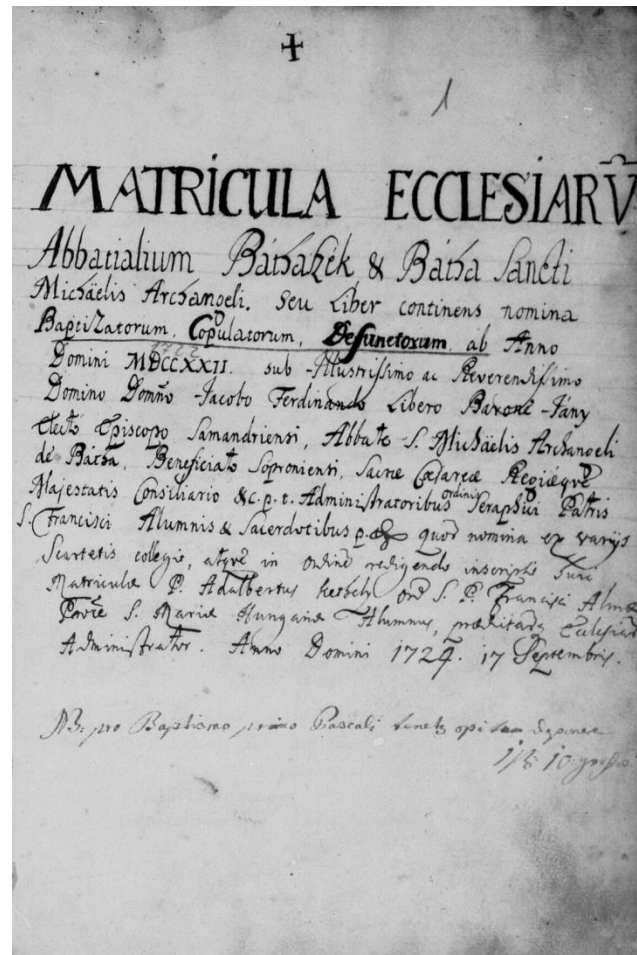 1
MATRICULA ECCLESIARV̄
Abbatialium Báthaszék & Bátha Sancti
Michaëlis Archangeli. Seu Liber continens nomina
Baptizatorum, Copulatorum, Defunctorum, ab Anno
Domini MDCCXXII. sub Illustrissimo ac Reverendissimo
Domino Domno Jacobo Ferdinando Libero Barone Jány
Electo Episcopo Samandriensi, Abbate S. Michaëlis Archangeli
de Bátha, Beneficiato Soproniensi, Sacrae Caesareae Regiaeque
Majestatis Consiliario &c. p. t. Administratoribus ordinis Seraphici Patris
S. Francisci Alumnis & Sacerdotibus quod nomina ex varijs
Scartetis collegit, atque in ordine redigendo inscripsit huic
Matriculae P. Adalbertus ord S. P. Francisci Almae
Provae S. Mariae Hungariae Alumnus, Ecclesiarū
Administrator. Anno Domini 1724. 17 Septembris.
NB: pro Baptismo primo Pascali
10